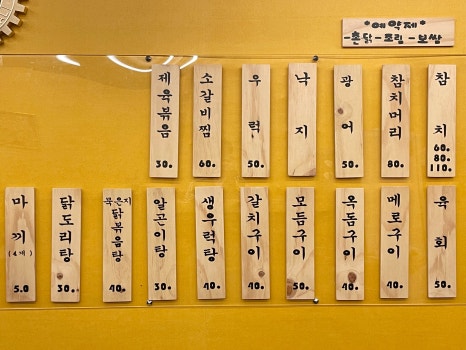 *예약제*
-촌닭-조림-보쌈
제육볶음
30.
소갈비찜
60.
우럭
50.
낙지
광어
50.
참치머리
80.
참치
60.
80.
110.
마끼
(4개)
5.0
닭도리탕
30.
묵은지
닭볶음탕
40.
알곤이탕
30.
생우럭탕
40.
갈치구이
40.
모듬구이
50.
옥돔구이
40.
메로구이
40.
육회
50.